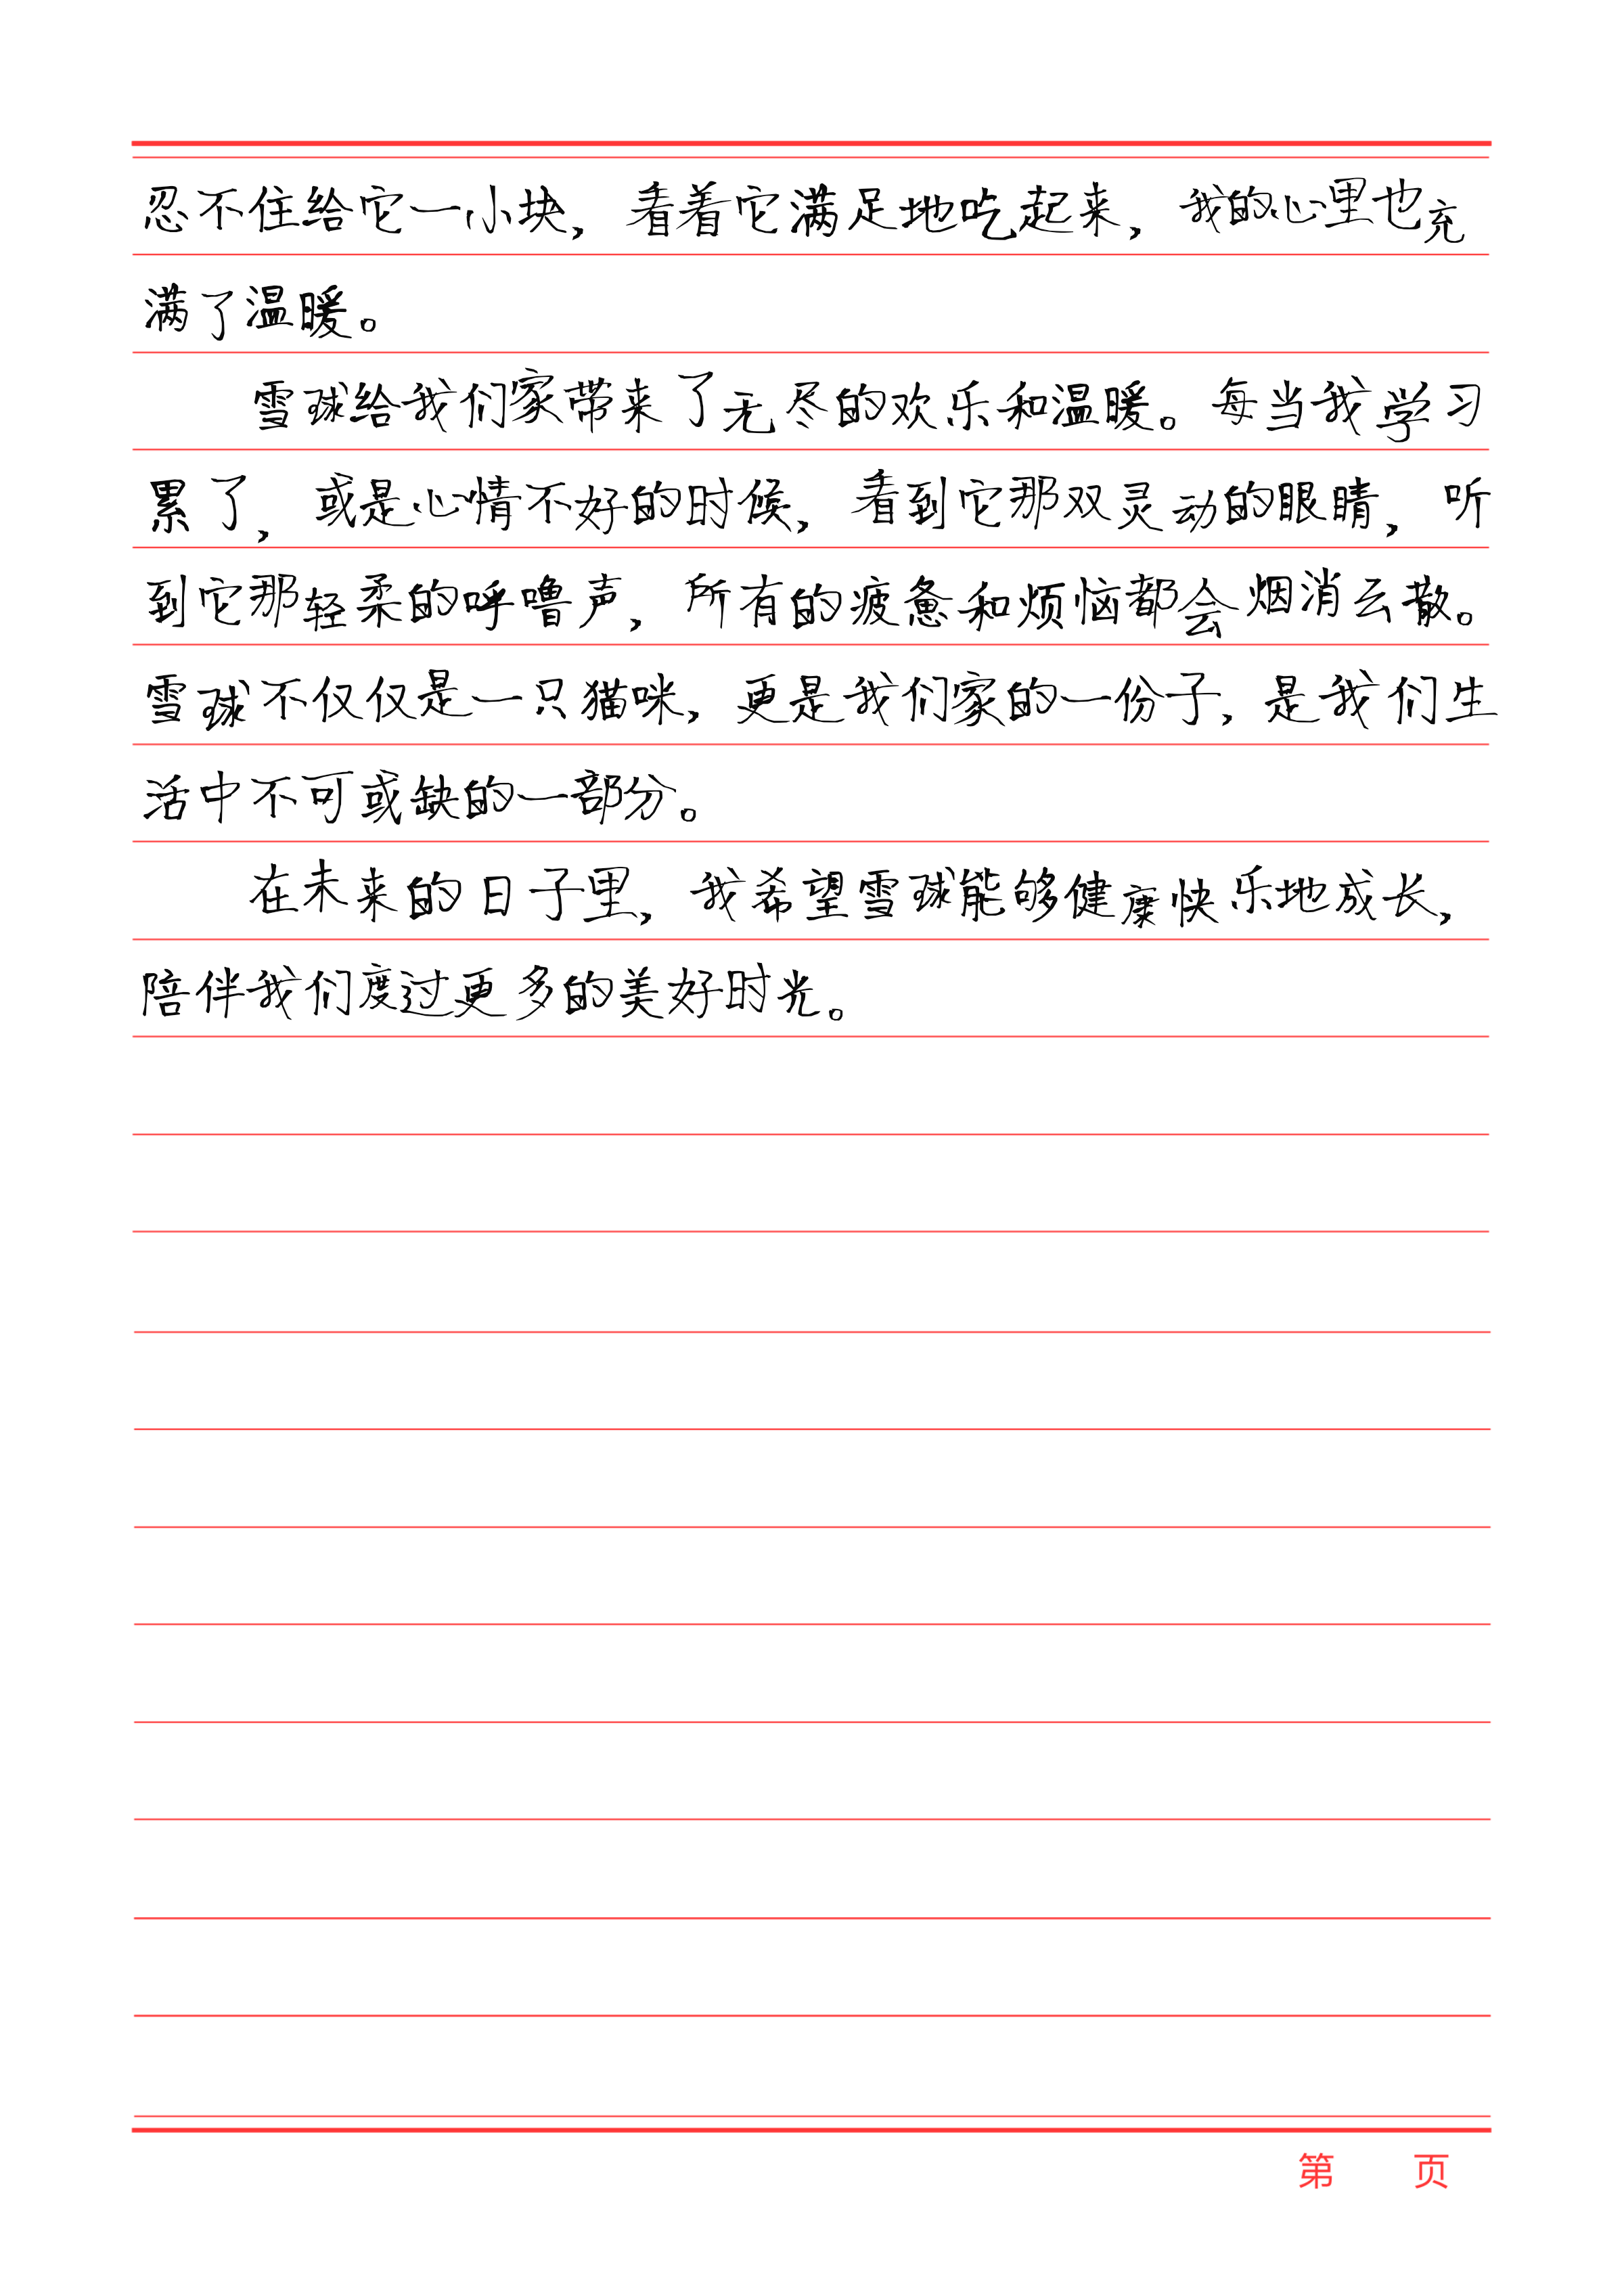 忍不住给它一小块，看着它满足地吃起来，我的心里也充
满了温暖。
雪球给我们家带来了无尽的欢乐和温暖。每当我学习
累了，或是心情不好的时候，看到它那双灵动的眼睛，听
到它那轻柔的呼噜声，所有的疲惫和烦恼都会烟消云散。
雪球不仅仅是一只猫咪，更是我们家的一份子，是我们生
活中不可或缺的一部分。
在未来的日子里，我希望雪球能够健康快乐地成长，
陪伴我们度过更多的美好时光。
第 页